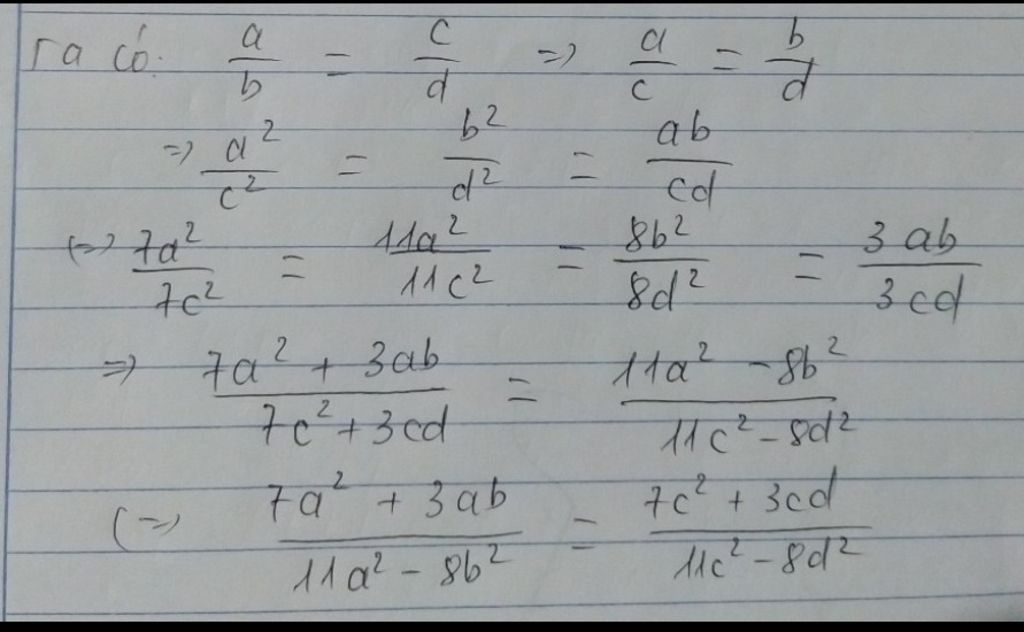 Ta có: a/b = c/d => a/c = b/d
=> a²/c² = b²/d² = ab/cd
(=> 7a²/7c² = 11a²/11c² = 8b²/8d² = 3ab/3cd
=> (7a² + 3ab)/(7c² + 3cd) = (11a² - 8b²)/(11c² - 8d²)
(=> (7a² + 3ab)/(11a² - 8b²) = (7c² + 3cd)/(11c² - 8d²)